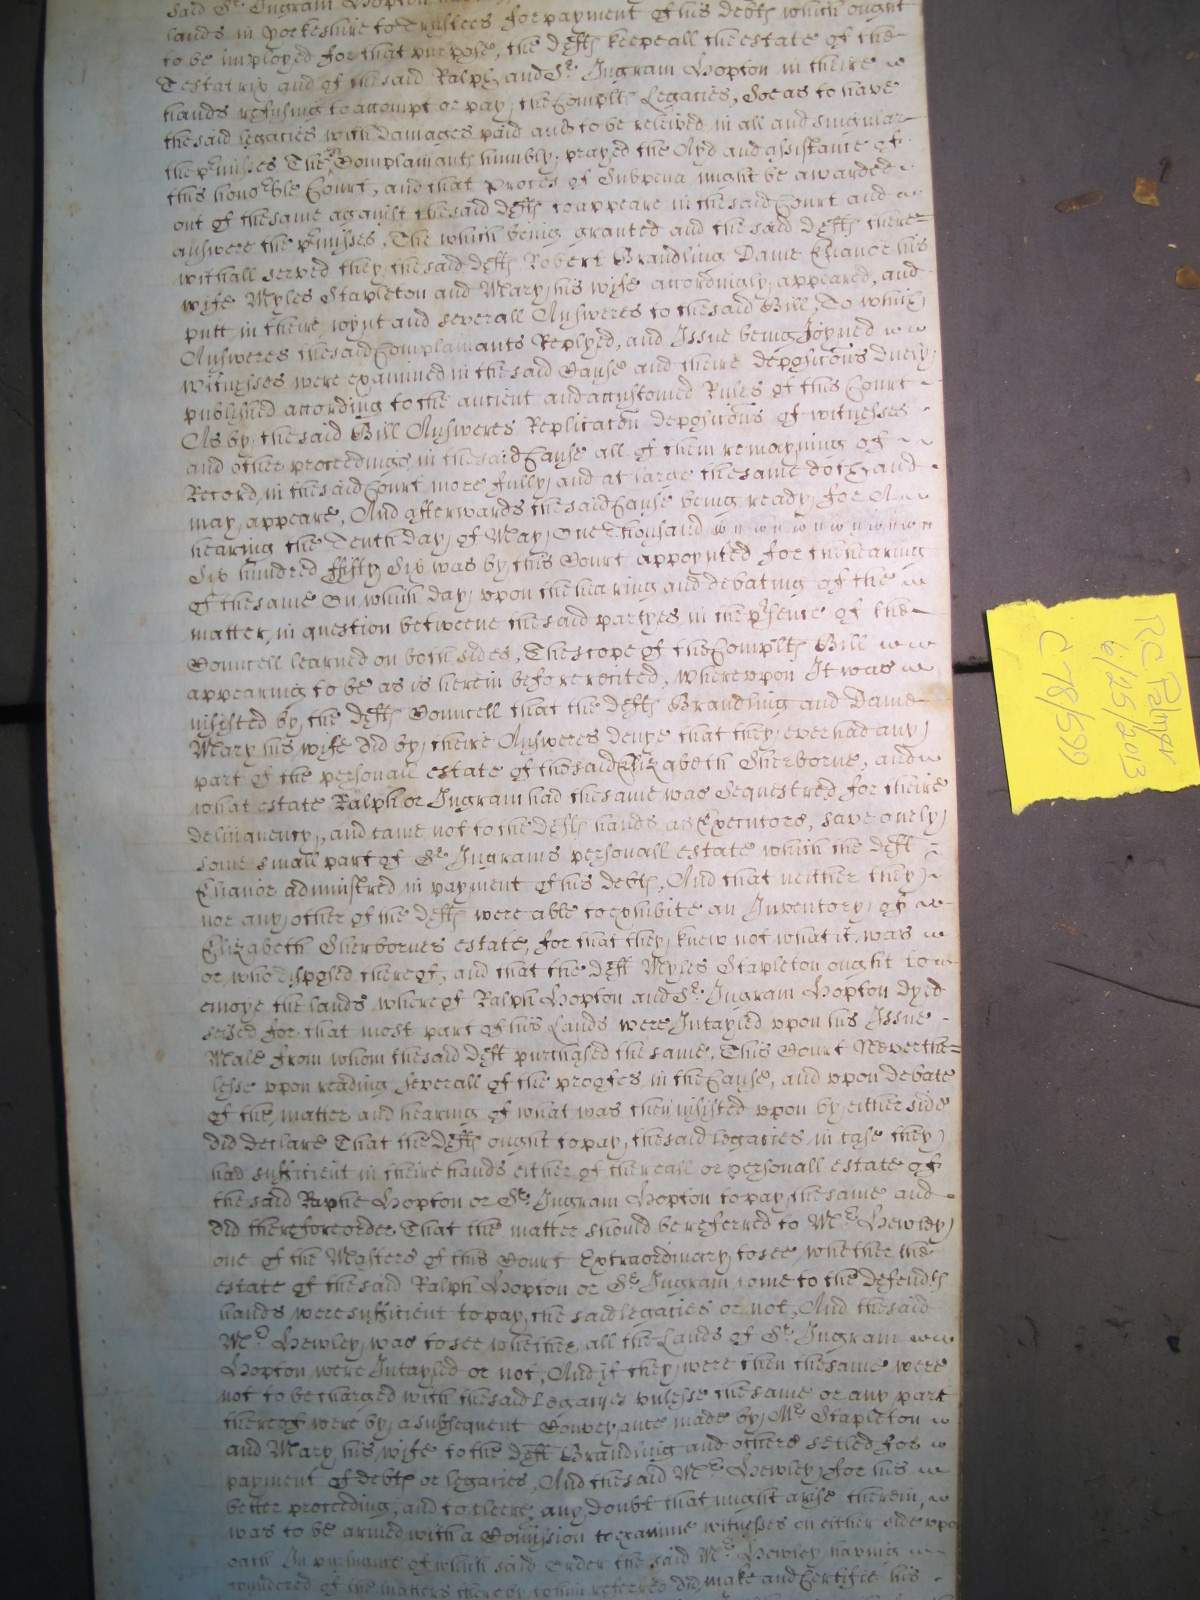 said Sr. Ingram Hopton
lands in Yorkeshire to Trustees for payment of his debts which ought
to be imployed for that purpose, the Defts keepe all the estate of the
Testatrix and of the said Ralph and Sr. Ingram Hopton in theire
hands refusing to accompt or pay the Complts Legacies, Soe as to have
the said legacies with damages paid and to be releived in all and singular
the pmisses The Complainants humbly prayed the Ayd and assistance of
this honoble Court, and that proces of Subpena might be awarded
out of the same against the said Defts to appeare in the said Court and
answere the pmisses, The which being granted and the said Defts there=
withall served they the said Defts Robert Brandling Dame Elianor his
wife Myles Stapleton and Mary his wife accordingly appeared, and
putt in theire joynt and severall Answeres to the said Bill, To which
Answeres the said Complainants Replyed, and Issue being Joyned
Witnesses were examined in the said Cause and theire depositions duely
published according to the antient and accustomed Rules of this Court
As by the said Bill Answeres Replication depositions of witnesses
and other proceedings in the said Cause all of them remayning of
Record in the said Court more fully and at large the same doth and
may appeare, And afterwards the said Cause being ready for A
hearing the Tenth day of May One Thousand
Six hundred ffifty Six was by this Court appoynted for the hearing
of the same On which day upon the hearing and debating of the
matter in question betweene the said partyes in the psence of the
Councell learned on both sides, The scope of the Complts Bill
appearing to be as is herein before recited, whereupon It was
insisted by the Defts Councell that the Defts Brandling and Dame
Mary his wife did by theire Answeres denye that they ever had any
part of the personall estate of the said Elizabeth Sherborne, and
what estate Ralph or Ingram had the same was Sequestred for theire
delinquency, and came not to the Defts hands as Executors, save onely
some small part of Sr. Ingrams personall estate which the Deft
Elianor administred in payment of his debts, And that neither they
nor any other of the Defts were able to exhibite an Inventory of
Elizabeth Sherbornes estate, for that they knew not what it was
or who disposed thereof, and that the Deft Myles Stapleton ought to
enioye the lands whereof Ralph Hopton and Sr. Ingram Hopton dyed
seised for that most part of his Lands were Intayled upon his Issue
Male from whom the said Deft purchased the same, This Court Neverthe=
lesse upon reading severall of the proofes in the Cause, and upon debate
of the matter and hearing of what was then insisted upon by either side
did declare That the Defts ought to pay the said legacies in case they
had sufficient in theire hands either of the reall or personall estate of
the said Raphe Hopton or Sr. Ingram Hopton to pay the same and
did therefore order That the matter should be referred to Mr. Hewley
one of the Masters of this Court Extraordinary to see whether the
estate of the said Ralph Hopton or Sr. Ingram come to the Defendts
hands were sufficient to pay the said legacies or not, And the said
Mr. Hewley was to see whether all the Lands of Sr. Ingram
Hopton were Intayled or not, And if they were then the same were
not to be charged with the said Legacyes unlesse the same or any part
thereof were by a subsequent Conveyance made by Mr. Stapleton
and Mary his wife to the Deft Brandling and others setled for
payment of debts or legacies, And the said Mr. Hewley for his
better proceeding, and to cleere any doubt that might arise therein,
was to be armed with a Comission to examine witnesses on either side upon
oath In pursuance of which said Order the said Mr. Hewley having
considered of the matters thereby to him referred did make and Certifie his
RC Palmer
6/25/2013
C 78/599